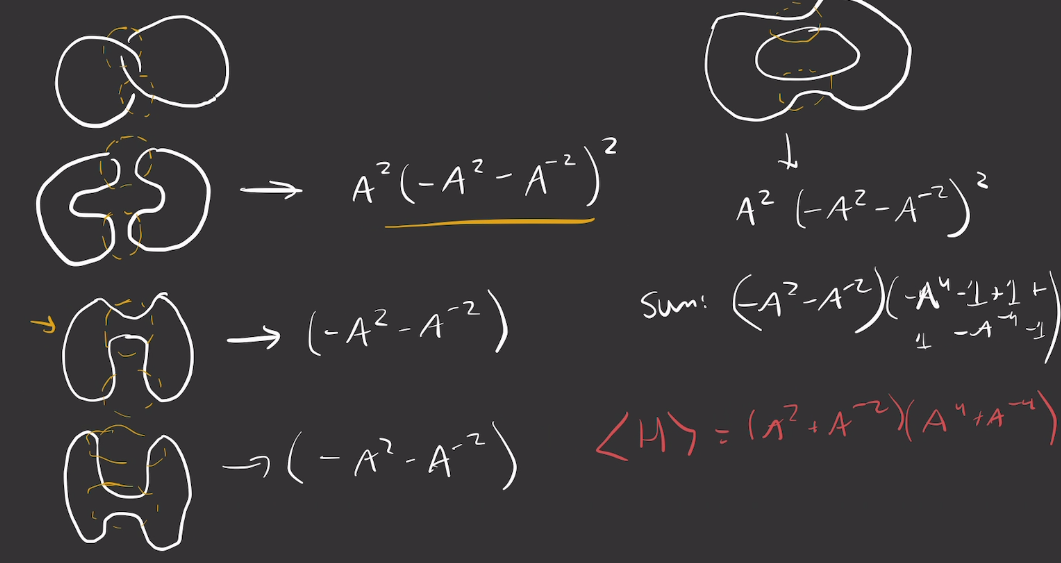 → A²(-A²-A⁻²)²
→ (-A²-A⁻²)
→ (-A²-A⁻²)
↓
A² (-A²-A⁻²)²
Sum: (-A²-A⁻²)(-A⁴-1+1+
1 -A⁻⁴-1)
⟨H⟩ = (A²+A⁻²)(A⁴+A⁻⁴)